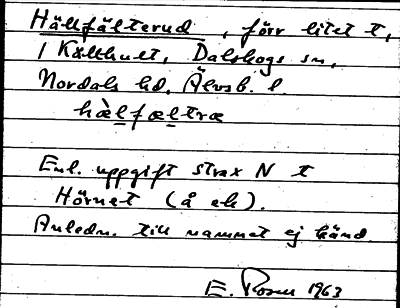 Hällfälterud, förr litet t,
i Källhult, Dalskogs sn,
Nordals hd. Älvsb. l.
hæ̀lfæltræ
Enl. uppgift strax N t
Hörnet (å ek).
Anledn. till namnet ej känd.
E. Rosen 1963